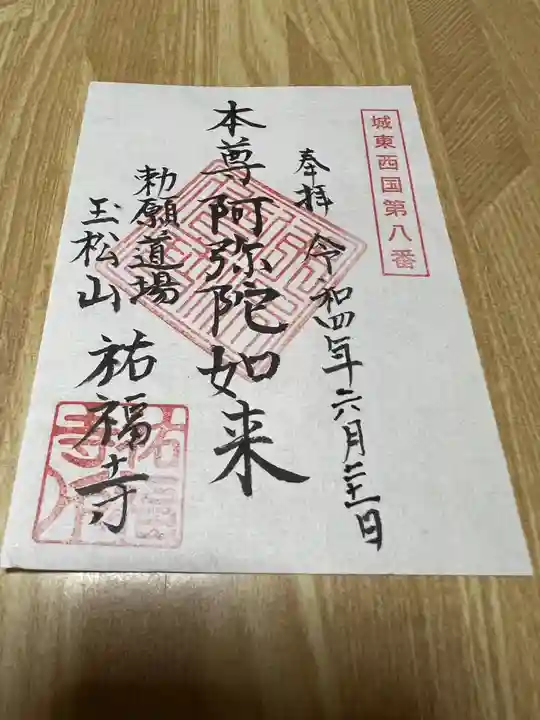 城東西国第八番
奉拝 令和四年六月二十一日
本尊阿弥陀如来
勅願道場
玉松山 祐福寺
祐福寺